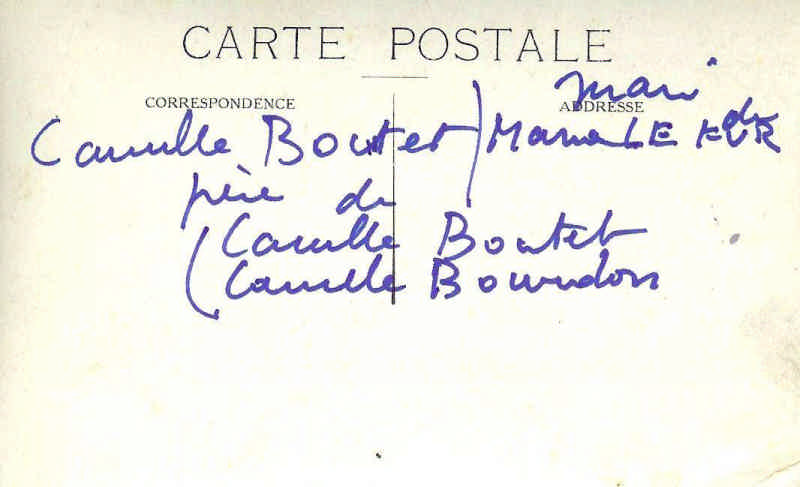 CARTE POSTALE
CORRESPONDENCE
ADDRESSE
mari de
Camille Boutet
père de
Camille Boutet
Camille Bourdon